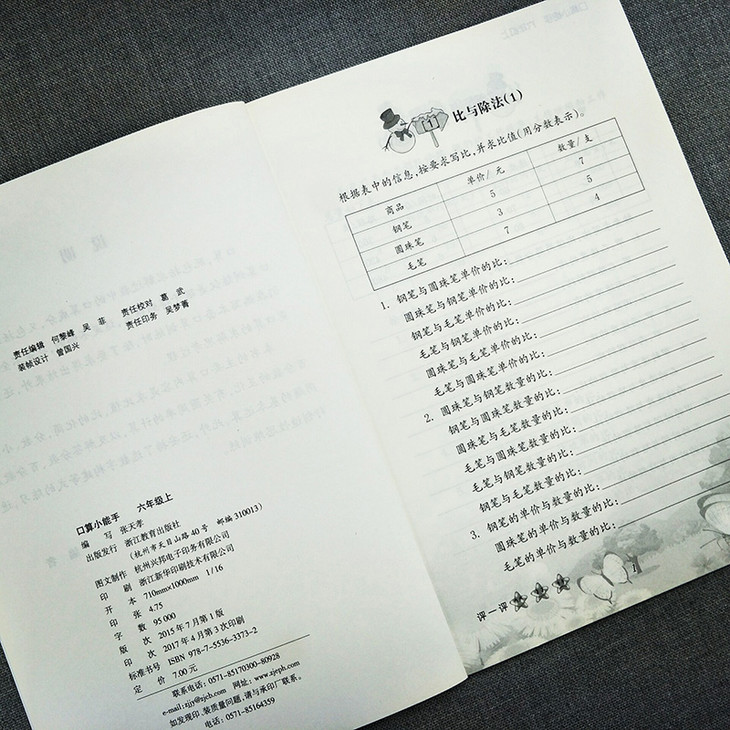 责任编辑 何黎峰 吴 菲 责任校对 葛 武
装帧设计 曾国兴 责任印务 吴梦菁
口算小能手 六年级上
编 写 张天孝
出版发行 浙江教育出版社
(杭州市天目山路 40 号 邮编 310013)
图文制作 杭州兴邦电子印务有限公司
印 刷 浙江新华印刷技术有限公司
开 本 710mm×1000mm 1/16
印 张 4.75
字 数 95 000
版 次 2015 年 7 月第 1 版
印 次 2017 年 4 月第 3 次印刷
标准书号 ISBN 978-7-5536-3373-2
定 价 7.00 元
联系电话: 0571-85170300-80928
e-mail: zjjy@zjcb.com 网址: www.zjeph.com
如发现印、装质量问题,请与承印厂联系。
电话: 0571-85164359
1 比与除法(1)
根据表中的信息,按要求写比,并求比值(用分数表示)。
商品 单价/元 数量/支
钢笔 5 7
圆珠笔 3 5
毛笔 7 4
1. 钢笔与圆珠笔单价的比:
圆珠笔与钢笔单价的比:
钢笔与毛笔单价的比:
毛笔与钢笔单价的比:
圆珠笔与毛笔单价的比:
毛笔与圆珠笔单价的比:
2. 圆珠笔与钢笔数量的比:
钢笔与圆珠笔数量的比:
圆珠笔与毛笔数量的比:
毛笔与圆珠笔数量的比:
毛笔与钢笔数量的比:
钢笔与毛笔数量的比:
3. 钢笔的单价与数量的比:
圆珠笔的单价与数量的比:
毛笔的单价与数量的比:
评一评
1